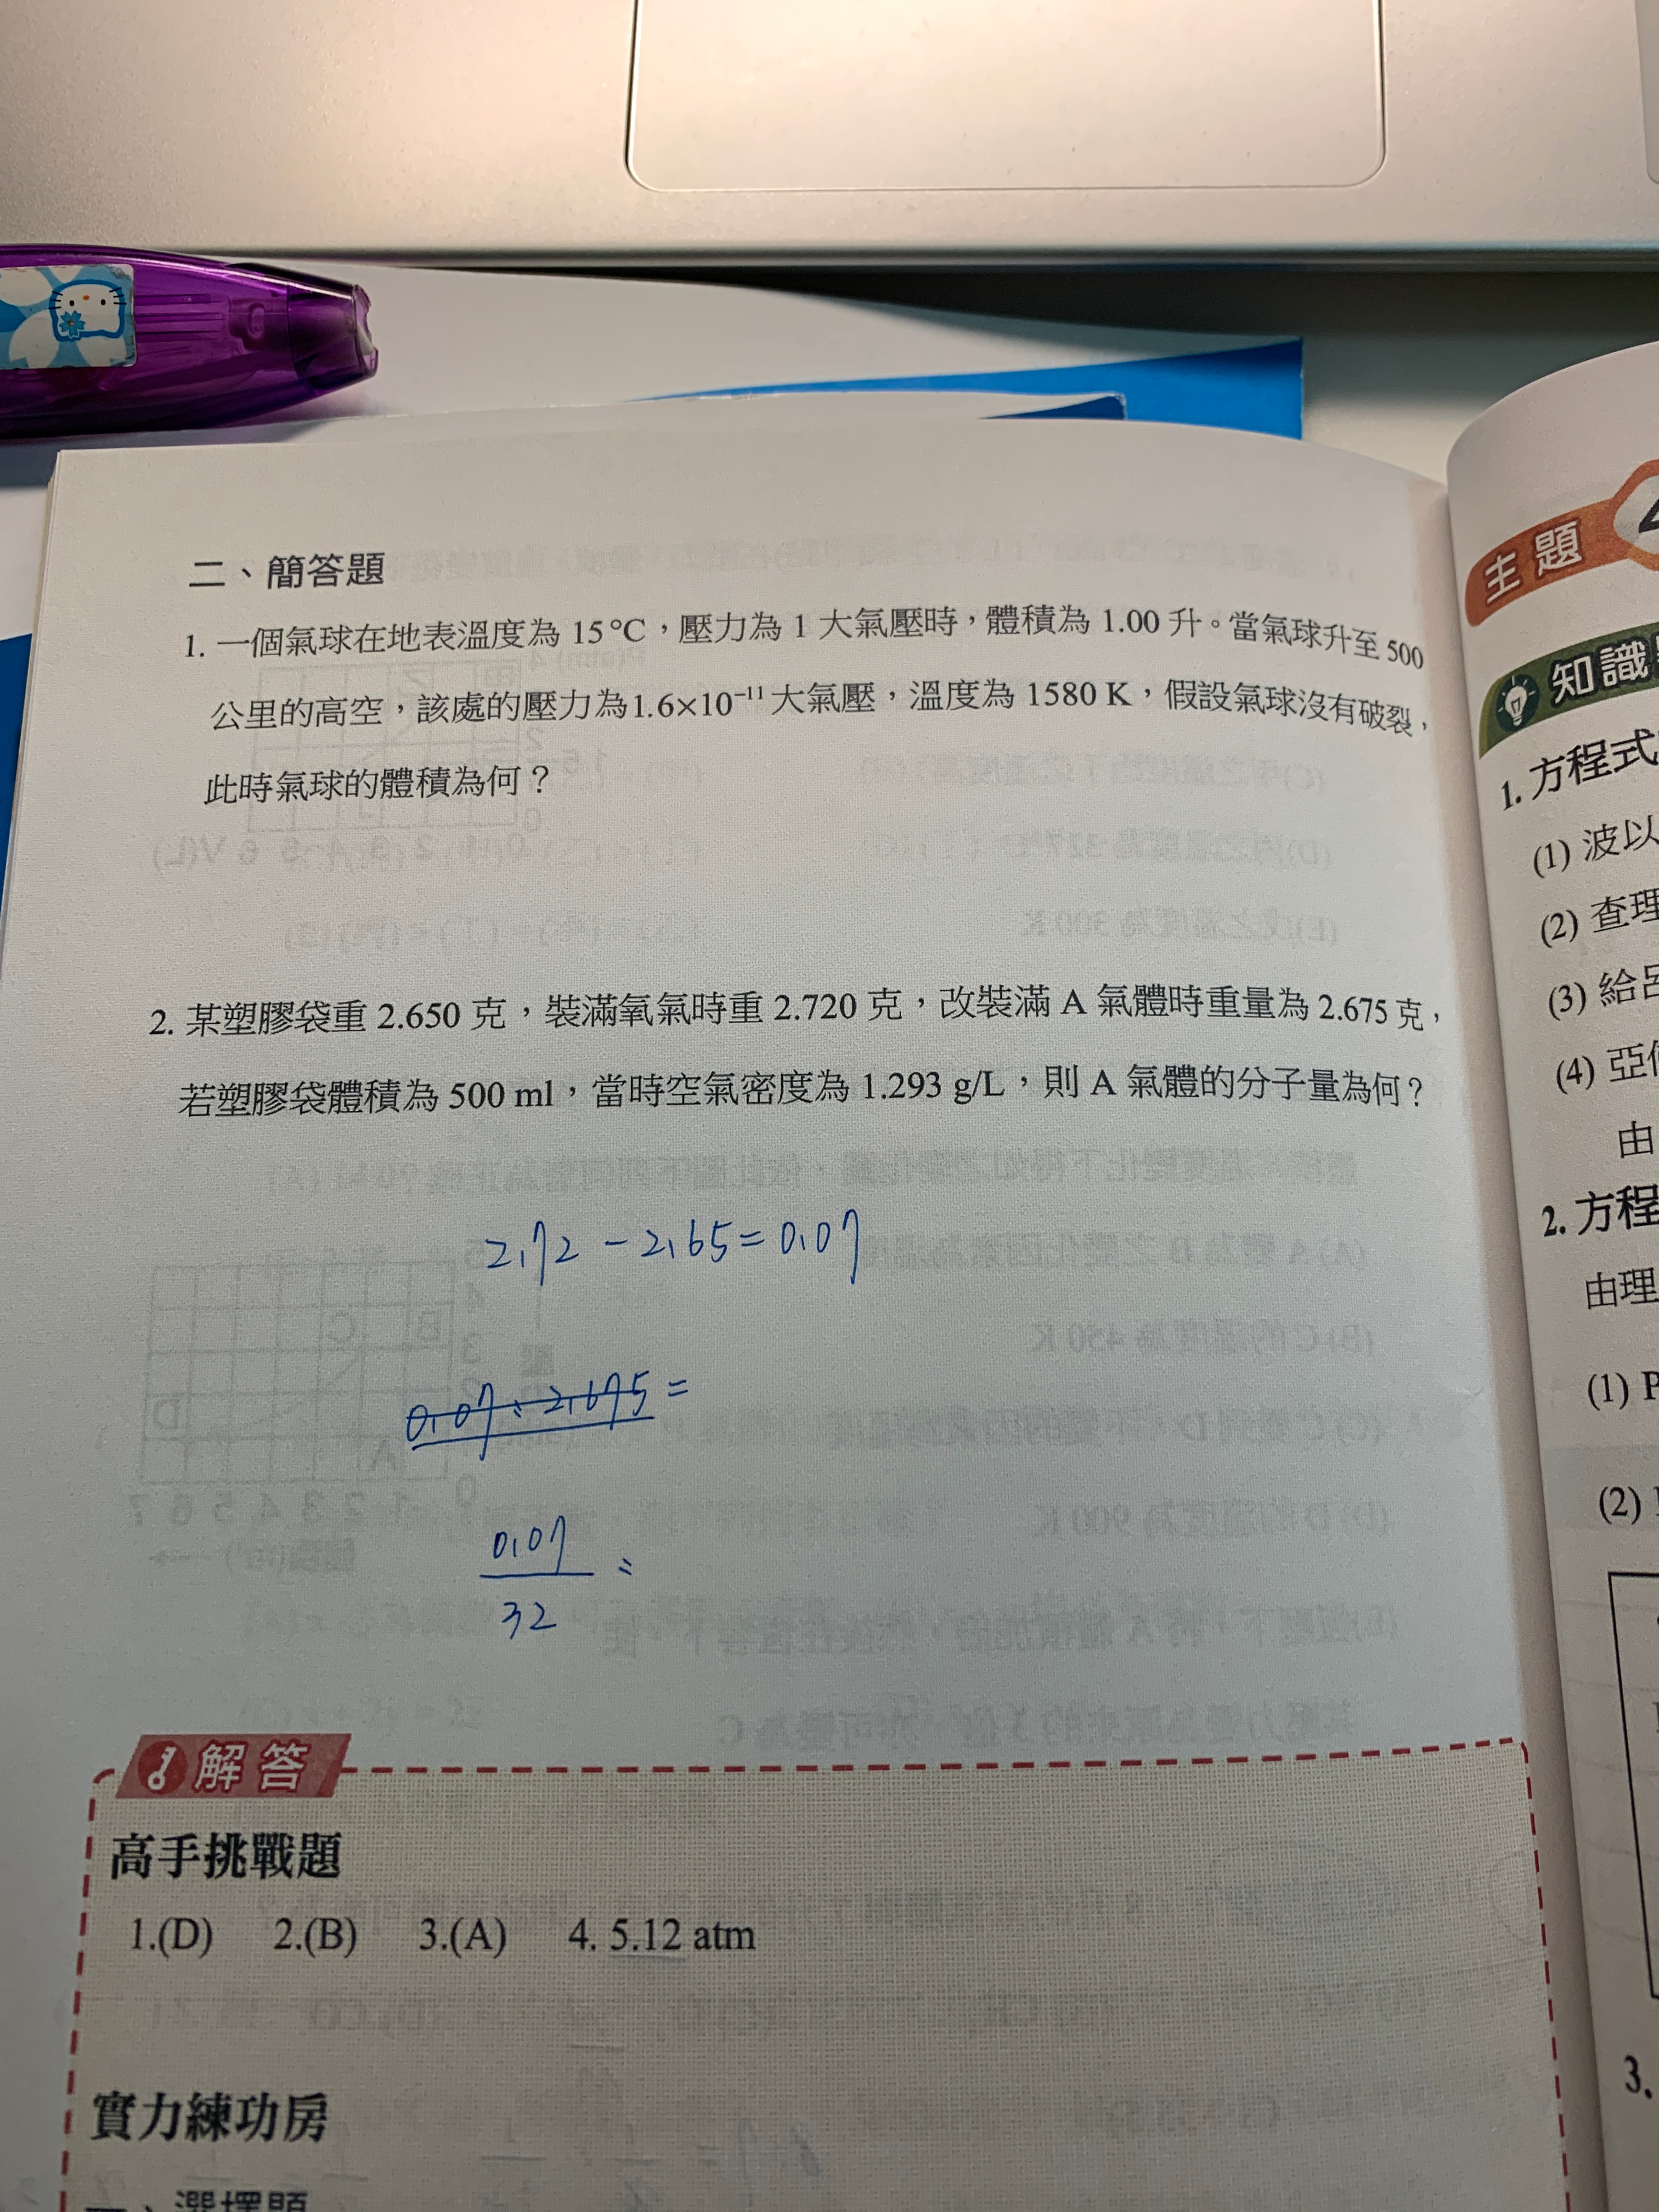 二、簡答題
1. 一個氣球在地表溫度為 15℃，壓力為 1 大氣壓時，體積為 1.00 升。當氣球升至 500
公里的高空，該處的壓力為1.6×10⁻¹¹大氣壓，溫度為 1580 K，假設氣球沒有破裂，
此時氣球的體積為何？
2. 某塑膠袋重 2.650 克，裝滿氧氣時重 2.720 克，改裝滿 A 氣體時重量為 2.675 克，
若塑膠袋體積為 500 ml，當時空氣密度為 1.293 g/L，則 A 氣體的分子量為何？
2.72 - 2.65 = 0.07
0.07 : 2.675 =
0.07
32
解答
高手挑戰題
1.(D) 2.(B) 3.(A) 4. 5.12 atm
實力練功房
一、選擇題
主題
知識
1. 方程式
(1) 波以
(2) 查理
(3) 給呂
(4) 亞
由
2. 方程
由理
(1) P
(2)
3.